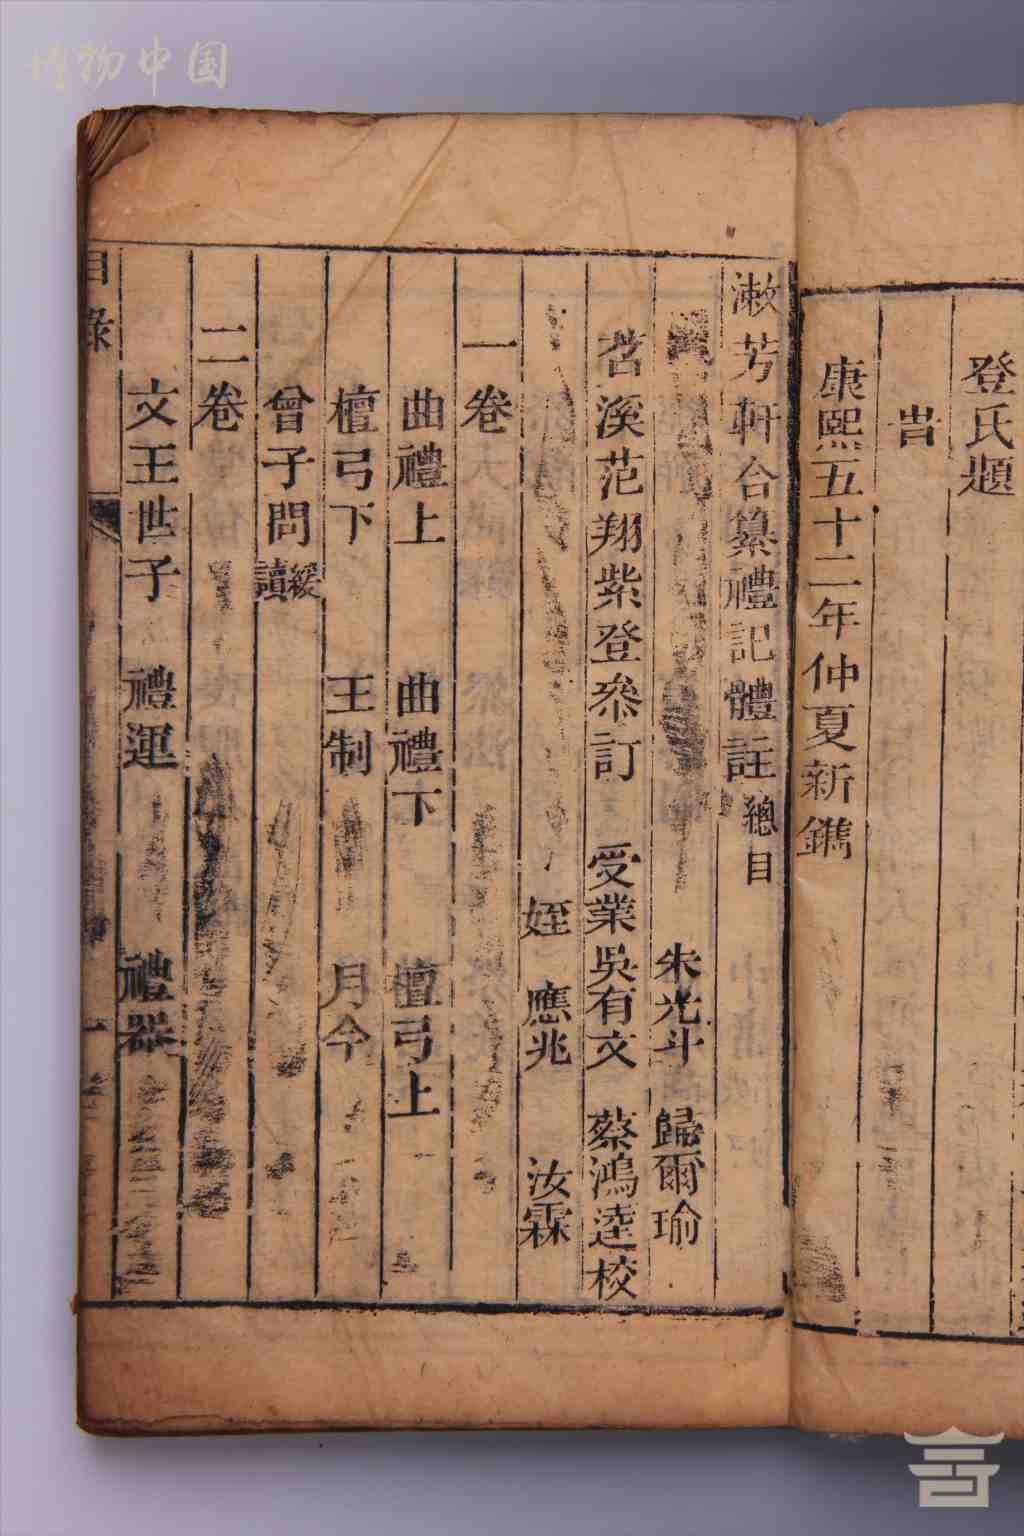 博物中国
登氏題
旹
康熙五十二年仲夏新鐫
漱芳軒合纂禮記體註總目
朱光斗 歸爾瑜
苕溪范翔紫登叅訂 受業吳有文 蔡鴻逵校
姪 應兆 汝霖
一卷
曲禮上 曲禮下 檀弓上
檀弓下 王制 月令
曾子問緩讀
二卷
文王世子 禮運 禮器
目錄 一